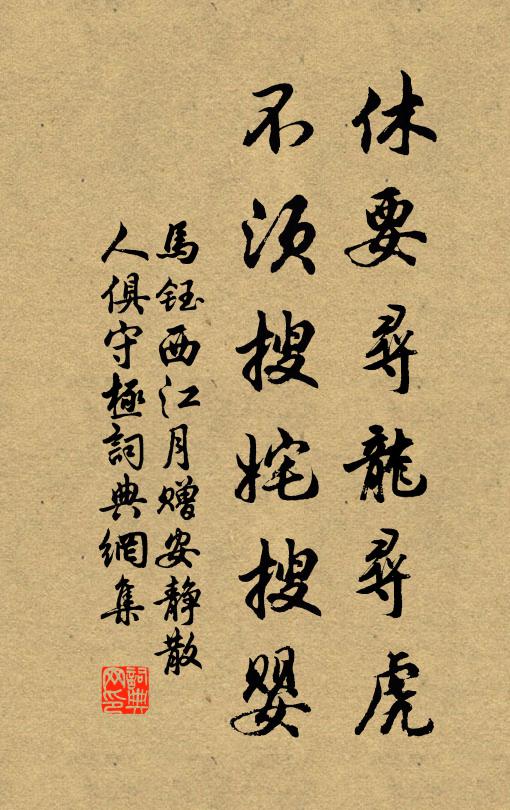 休要尋龍尋虎
不須搜姹搜嬰
馬鈺西江月赠安靜散
人俱守極詞典網集
詞典
网印